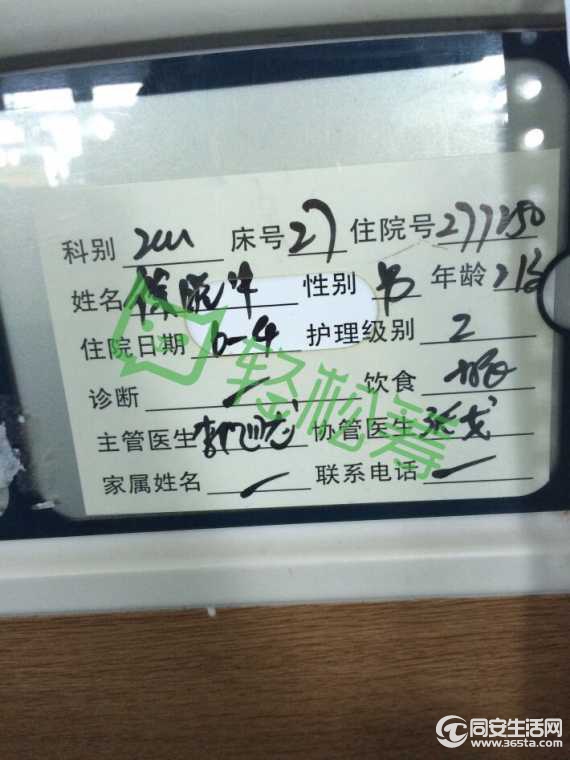 科别 床号 27 住院号 277250
姓名 性别 男 年龄
住院日期 6-4 护理级别 2
诊断 饮食
主管医生 协管医生
家属姓名 联系电话
轻松筹
同安生活网
www.365ta.com